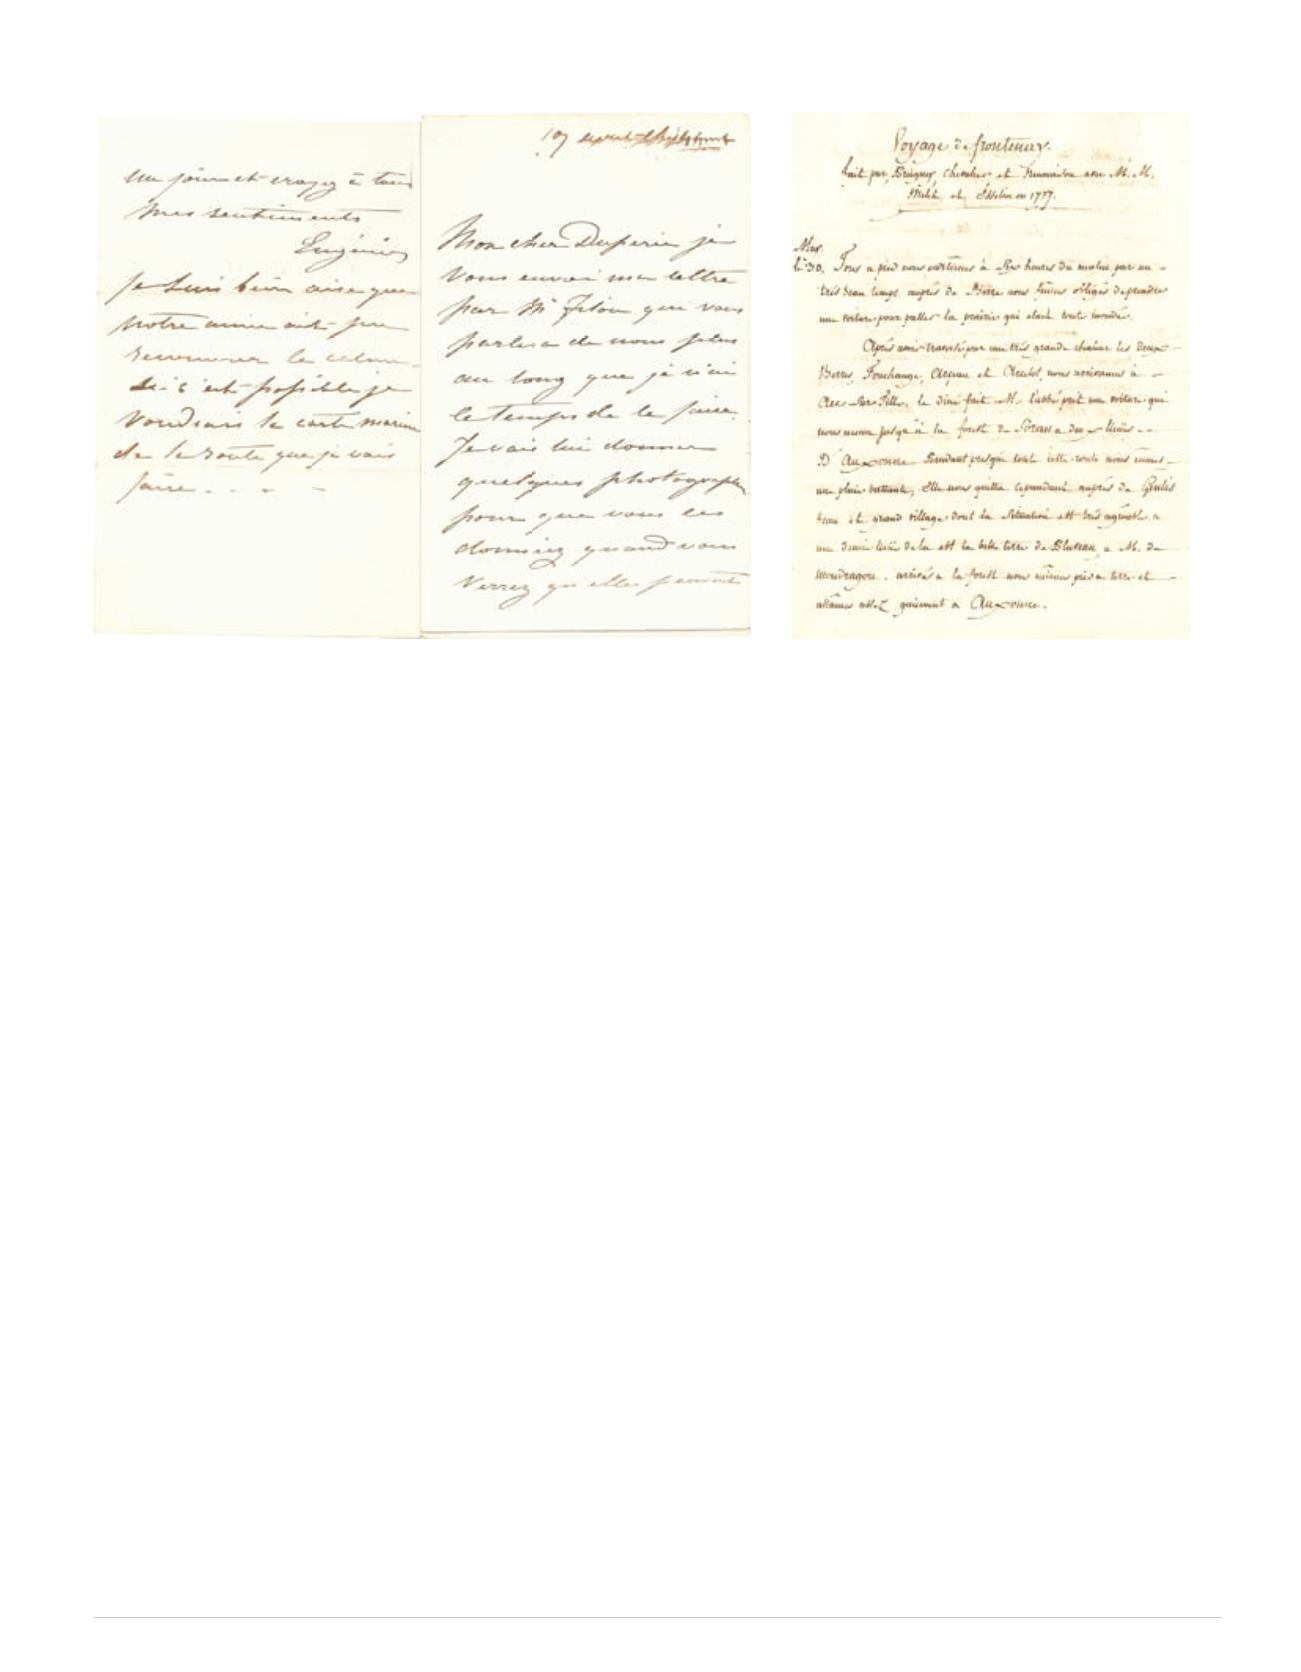 un jour et croyez à tous
mes sentiments
Eugénie
Je suis bien aise que
notre amie ait pu
retrouver le calme
Si c'est possible je
voudrais la carte marine
de la route que je vais
faire . . . .
19
Mon cher Duperré je
vous envoi ma lettre
par Mr Filon qui vous
parlera de nous plus
au long que je n'ai
le temps de le faire.
Je vais lui donner
quelques photographies
pour que vous les
donniez quand vous
verrez qu'elles peuvent
Voyage de frontenay.
fait par, Chevalier et avec M. M.
et en 1777.
May.
le 30. Tous a pied nous partimes à Six heures du matin par un
très beau temps, auprès de Bierre nous fumes obligés de prendre
une voiture pour passer la prairie qui etait toute inondée.
Après avoir traversé par une très grande chaleur les deux
Bierres, Fouchange, Arceau et Arcelot, nous arrivames à
Arc Sur Tille, le diné fait M. l'abbé prit une voiture qui
nous mena jusqu'à la forest de a deux lieües
D'Auxonne Pendant presque toute cette route nous eumes
une pluie battante, Elle nous quitta cependant auprès de Genlis
beau et grand village dont la Situation est très agréable, a
une demie lieüe de la est la belle terre de a M. de
Mondragon. arrivés a la forest nous mimes pied a terre et
allames assez gaiement a Auxonne.